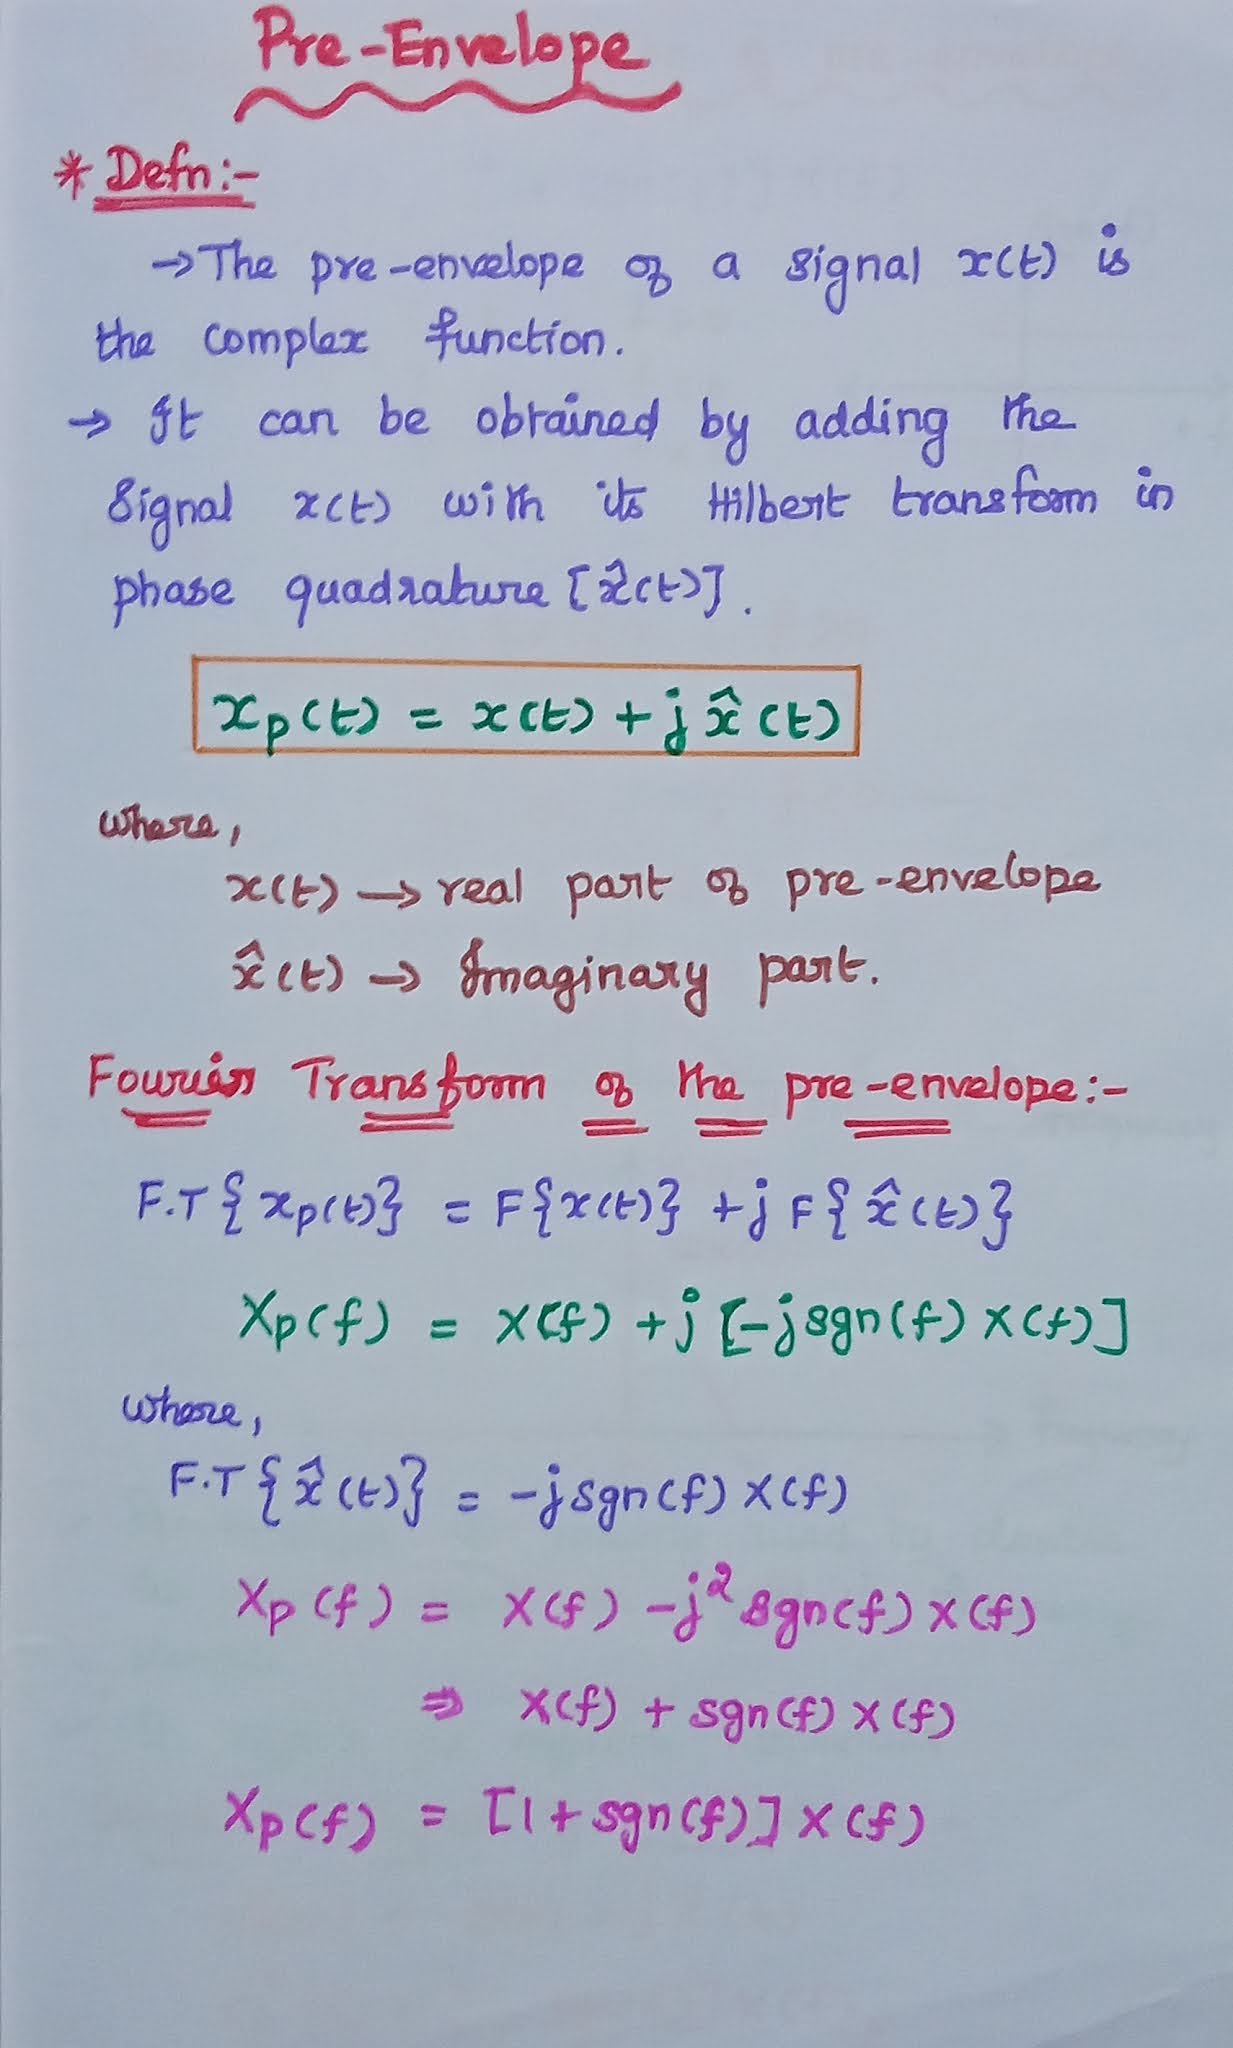 Pre-Envelope
* Defn:-
→ The pre-envelope of a signal x(t) is
the complex function.
→ It can be obtained by adding the
signal x(t) with its Hilbert transform in
phase quadrature [x̂(t)].
xₚ(t) = x(t) + j x̂(t)
where,
x(t) → real part of pre-envelope
x̂(t) → Imaginary part.
Fourier Transform of the pre-envelope:-
F.T { xₚ(t)} = F{x(t)} + j F{ x̂(t)}
Xₚ(f) = X(f) + j [-j sgn(f) X(f)]
where,
F.T { x̂(t)} = -j sgn(f) X(f)
Xₚ(f) = X(f) - j² sgn(f) X(f)
⇒ X(f) + sgn(f) X(f)
Xₚ(f) = [1 + sgn(f)] X(f)